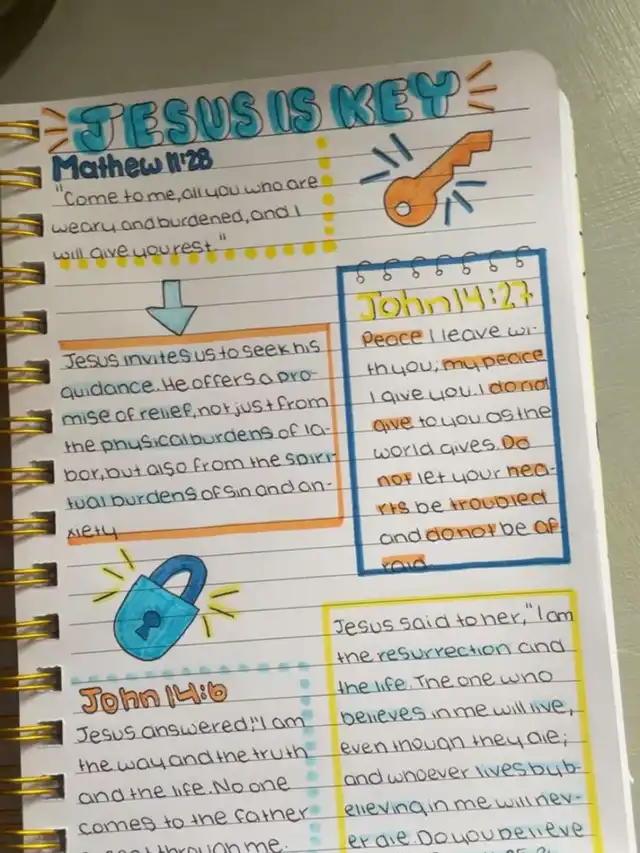 JESUS IS KEY
Mathew 11:28
"Come to me, all you who are
weary and burdened, and I
will give you rest."
Jesus invites us to seek his
guidance. He offers a pro-
mise of relief, not just from
the physical burdens of la-
bor, but also from the spiri-
tual burdens of sin and an-
xiety
John 14:27
Peace I leave wi-
th you; my peace
I give you. I do not
give to you as the
world gives. Do
not let your hea-
rts be troubled
and do not be af
raid.
John 14:6
Jesus answered, "I am
the way and the truth
and the life. No one
comes to the father
through me.
Jesus said to her, "I am
the resurrection and
the life. The one who
believes in me will live,
even though they die;
and whoever lives by b-
elieving in me will nev-
er die. Do you believe